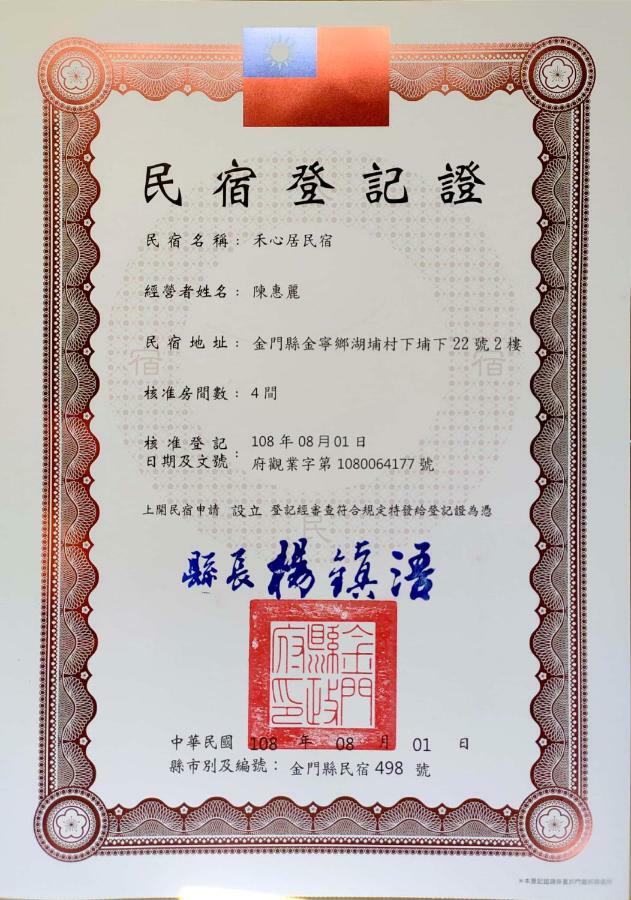 民宿登記證
民宿名稱：禾心居民宿
經營者姓名：陳惠麗
民宿地址：金門縣金寧鄉湖埔村下埔下22號2樓
核准房間數：4間
核准登記日期及文號：108年08月01日
府觀業字第1080064177號
上開民宿申請 設立 登記經審查符合規定特發給登記證為憑
縣長 楊鎮浯
金門縣政府印
中華民國 108 年 08 月 01 日
縣市別及編號：金門縣民宿 498 號